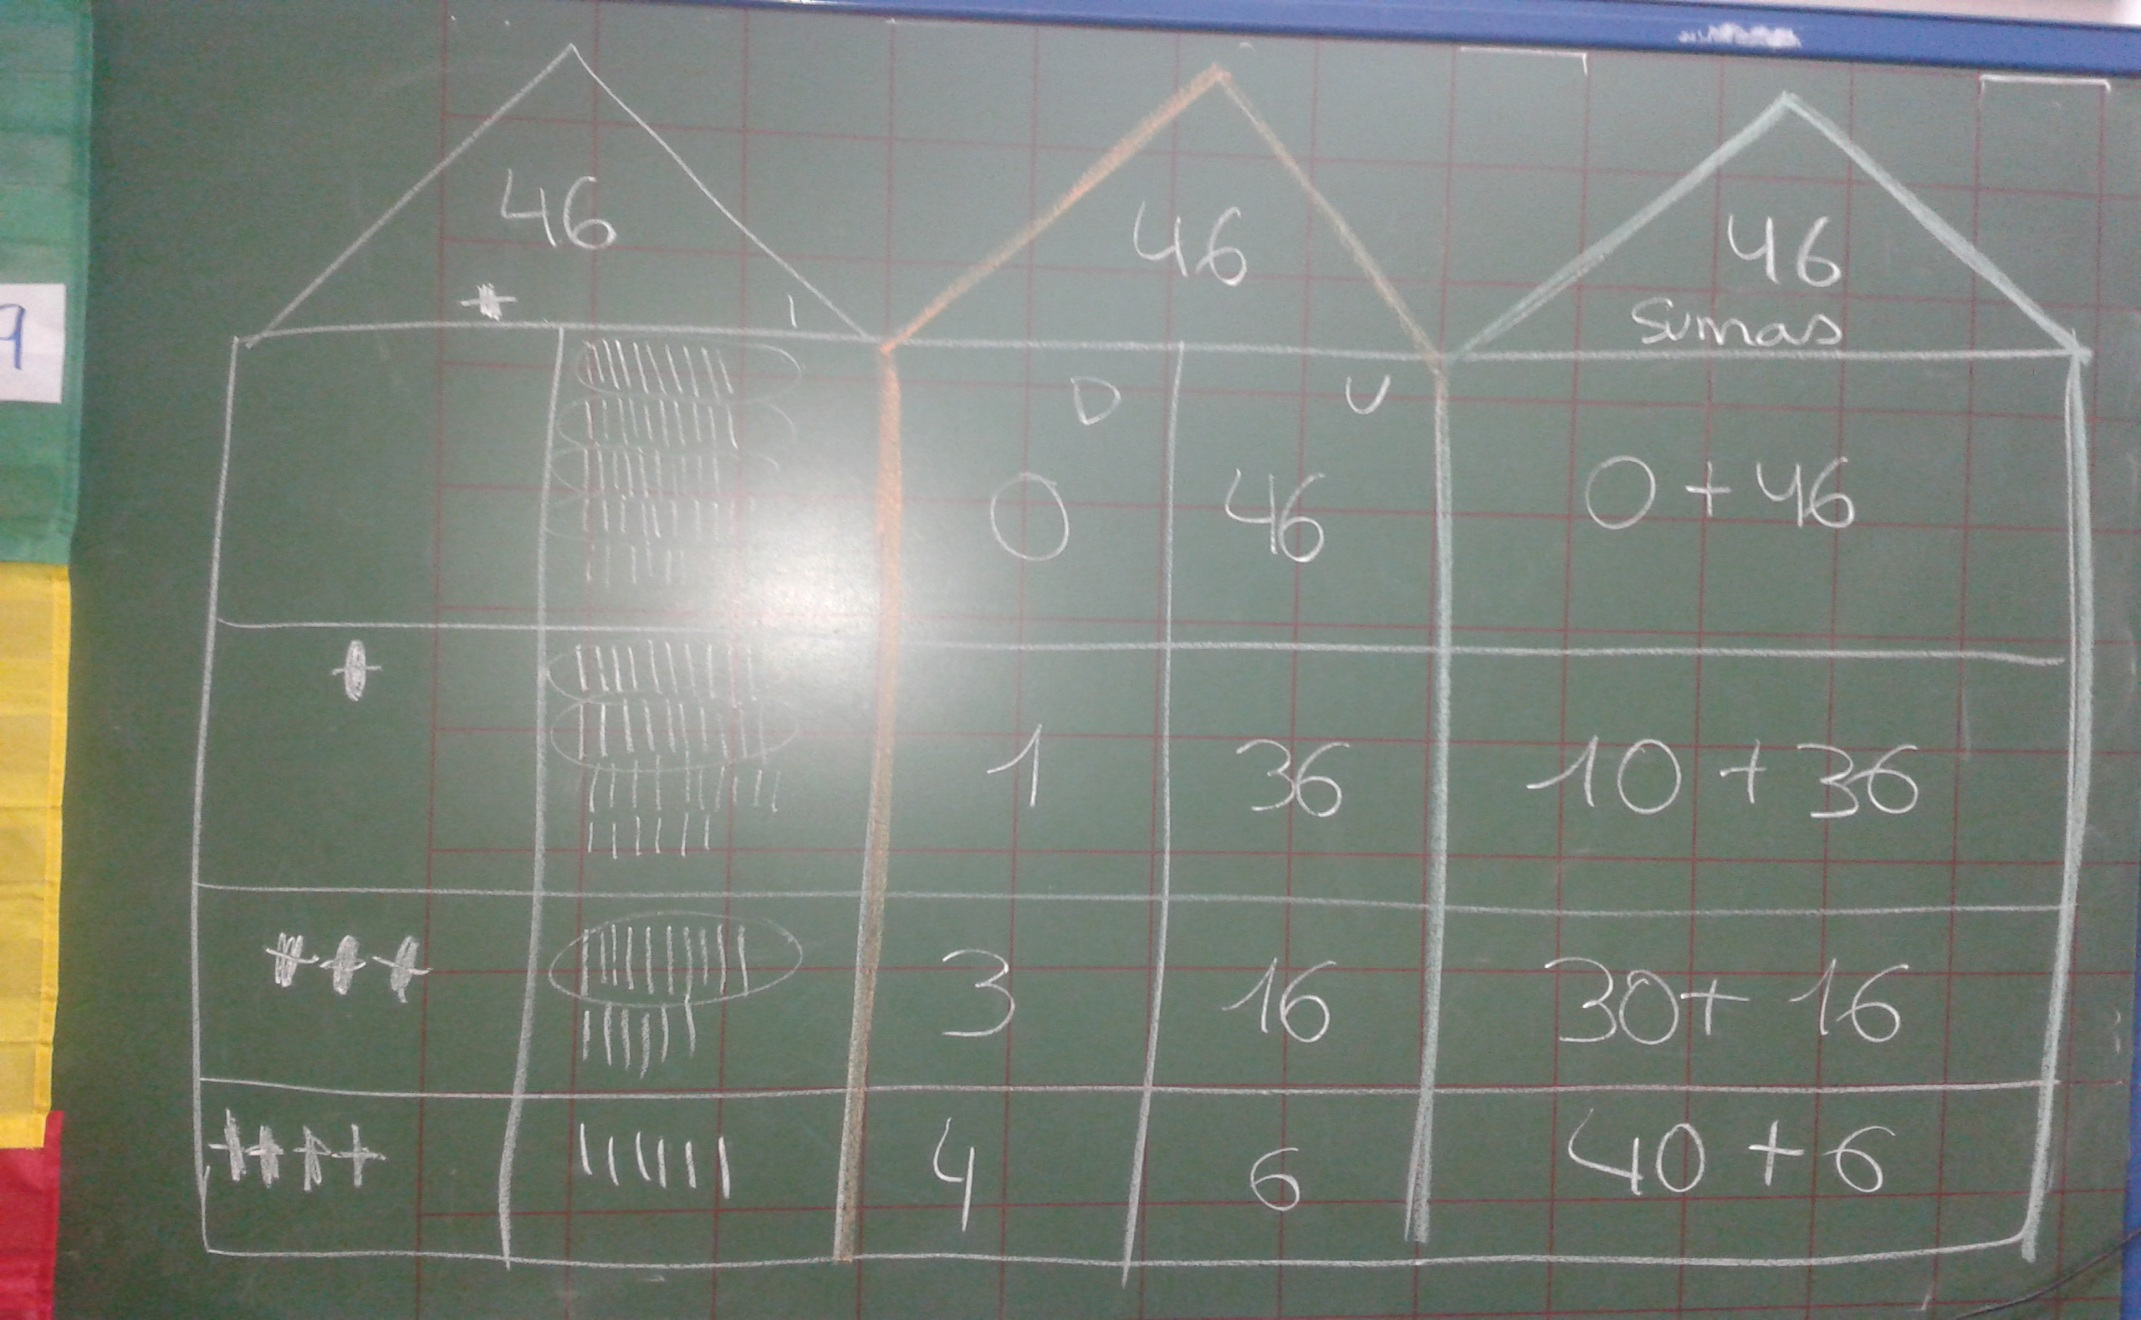 46
46
46
Sumas
D U
0 46 0 + 46
1 36 10 + 36
3 16 30 + 16
4 6 40 + 6
9